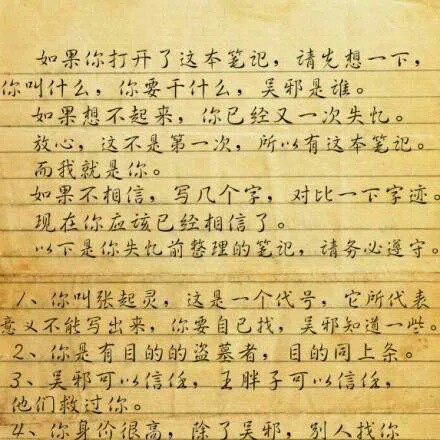 如果你打开了这本笔记，请先想一下，
你叫什么，你要干什么，吴邪是谁。
如果想不起来，你已经又一次失忆。
放心，这不是第一次，所以有这本笔记。
而我就是你。
如果不相信，写几个字，对比一下字迹。
现在你应该已经相信了。
以下是你失忆前整理的笔记，请务必遵守。
1、你叫张起灵，这是一个代号，它所代表
意义不能写出来，你要自己找，吴邪知道一些。
2、你是有目的的盗墓者，目的同上条。
3、吴邪可以信任，王胖子可以信任，
他们救过你。
4、你身价很高，除了吴邪，别人找你